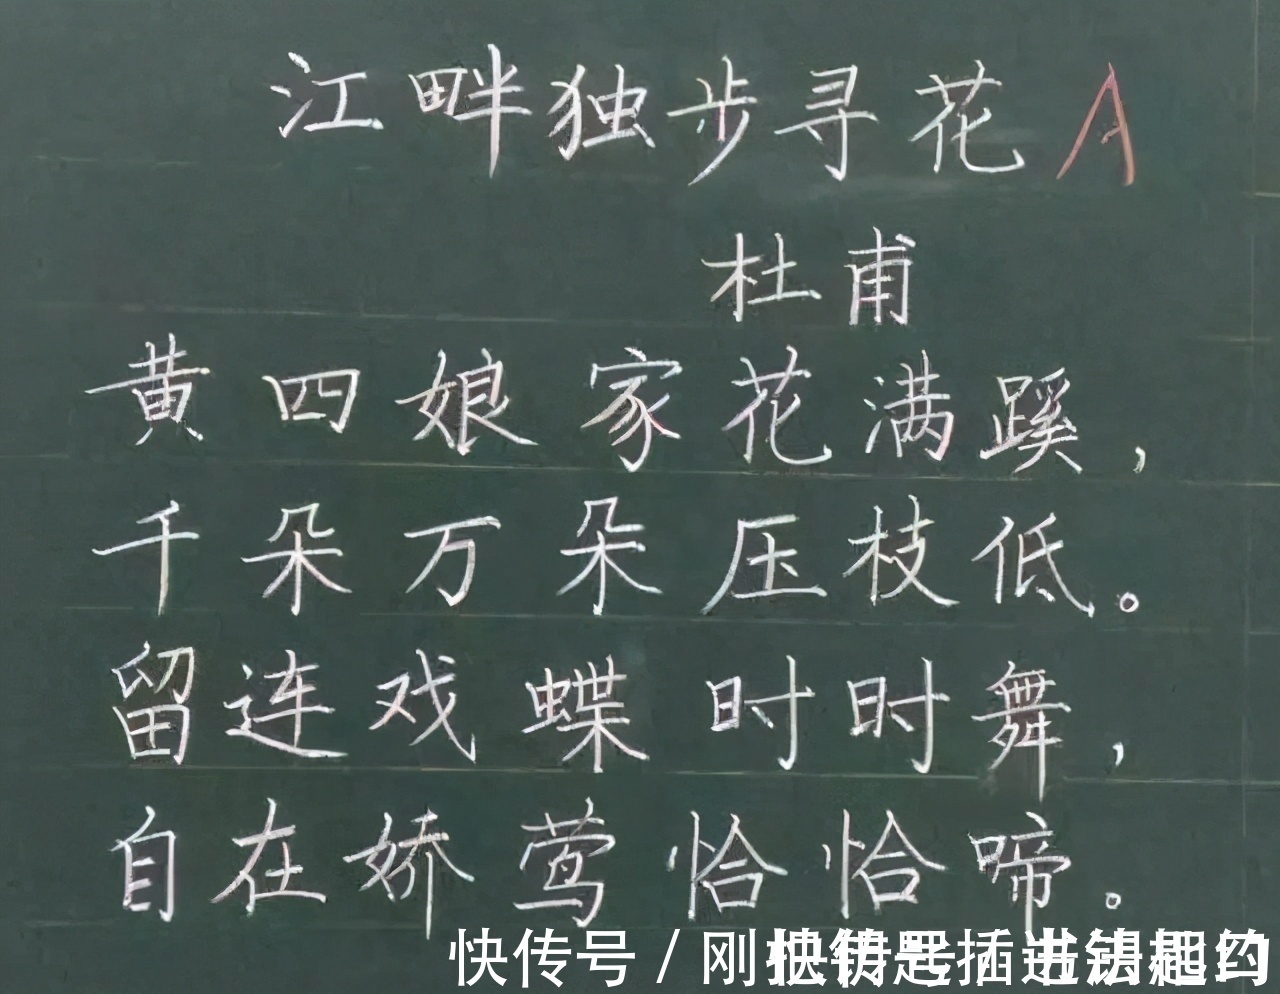 江畔独步寻花A
杜甫
黄四娘家花满蹊，
千朵万朵压枝低。
留连戏蝶时时舞，
自在娇莺恰恰啼。
快传号/刚把钥匙插进锁孔